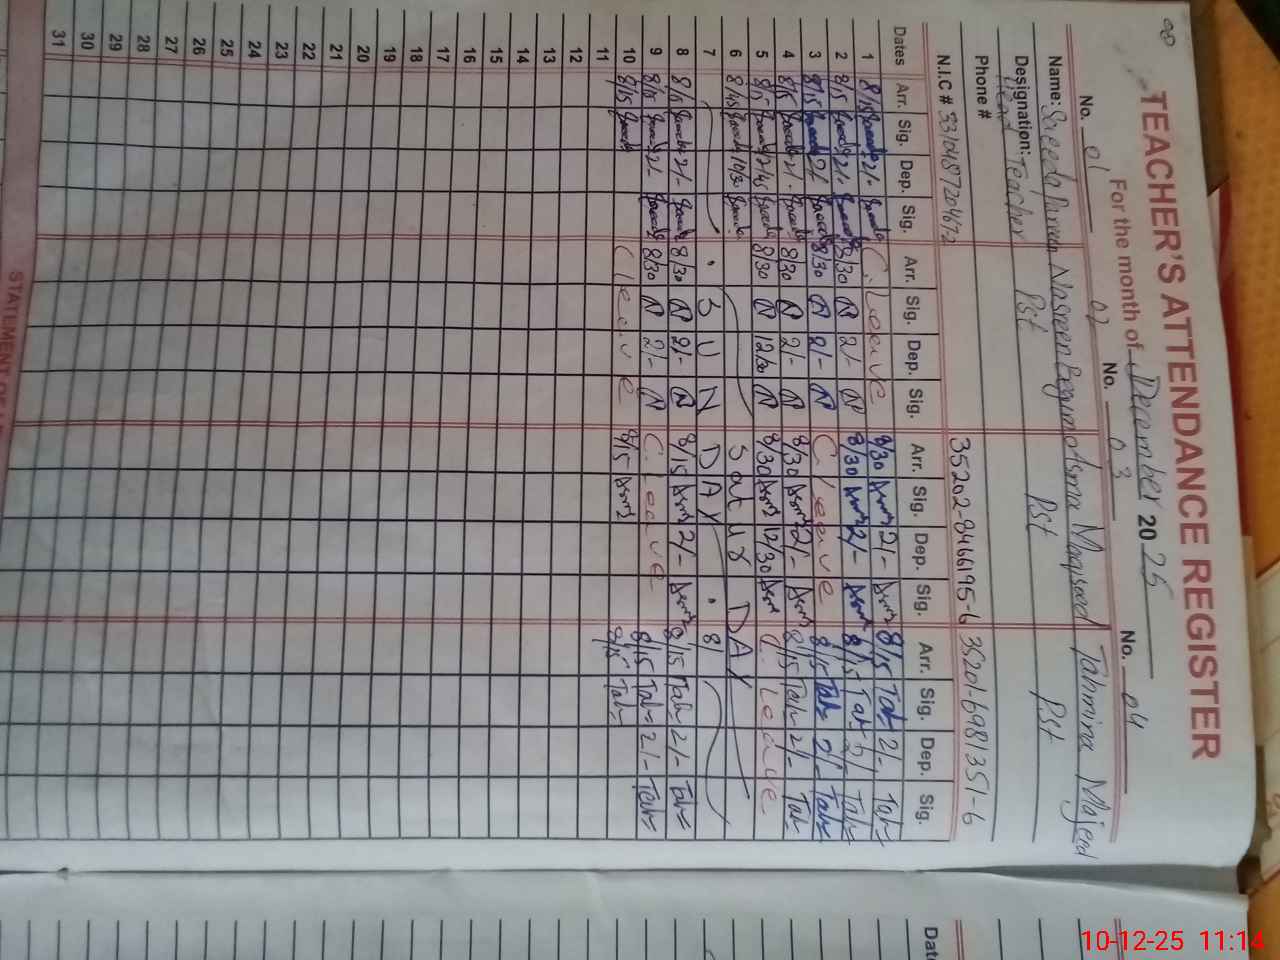 TEACHER'S ATTENDANCE REGISTER
For the month of December 2025
No. 01 02 No. 03 No. 04
Name: Saeeda Parveen Nasreen Begum Asma Maqsood Tahmina Majeed
Designation: Head Teacher Pst Pst Pst
Phone #
N.I.C # 35202-8466195-6 35201-6981351-6
Dates Arr. Sig. Dep. Sig. Arr. Sig. Dep. Sig. Arr. Sig. Dep. Sig. Arr. Sig. Dep. Sig.
1 8/15 2/- C. Leave 8/30 2/- 8/15 Tah 2/- Tah
2 8/15 2/- 8/30 2/- 8/30 2/- 8/15 Tah 2/- Tah
3 8/15 2/- 8/30 2/- C. Leave 8/15 Tah 2/- Tah
4 8/15 2/- 8/30 2/- 8/30 2/- 8/15 Tah 2/- Tah
5 8/15 12/45 8/30 12/30 8/30 12/30 C. Leave
6 8/45 10/30 Satur DAY
7 SUN DAY
8 8/15 2/- 8/30 2/- 8/15 2/- 8/15 Tah 2/- Tah
9 8/15 2/- 8/30 2/- C. Leave 8/15 Tah 2/- Tah
10 8/15 C Leave 8/15 8/15 Tah
11
12
13
14
15
16
17
18
19
20
21
22
23
24
25
26
27
28
29
30
31
STATEMENT OF
10-12-25 11:14